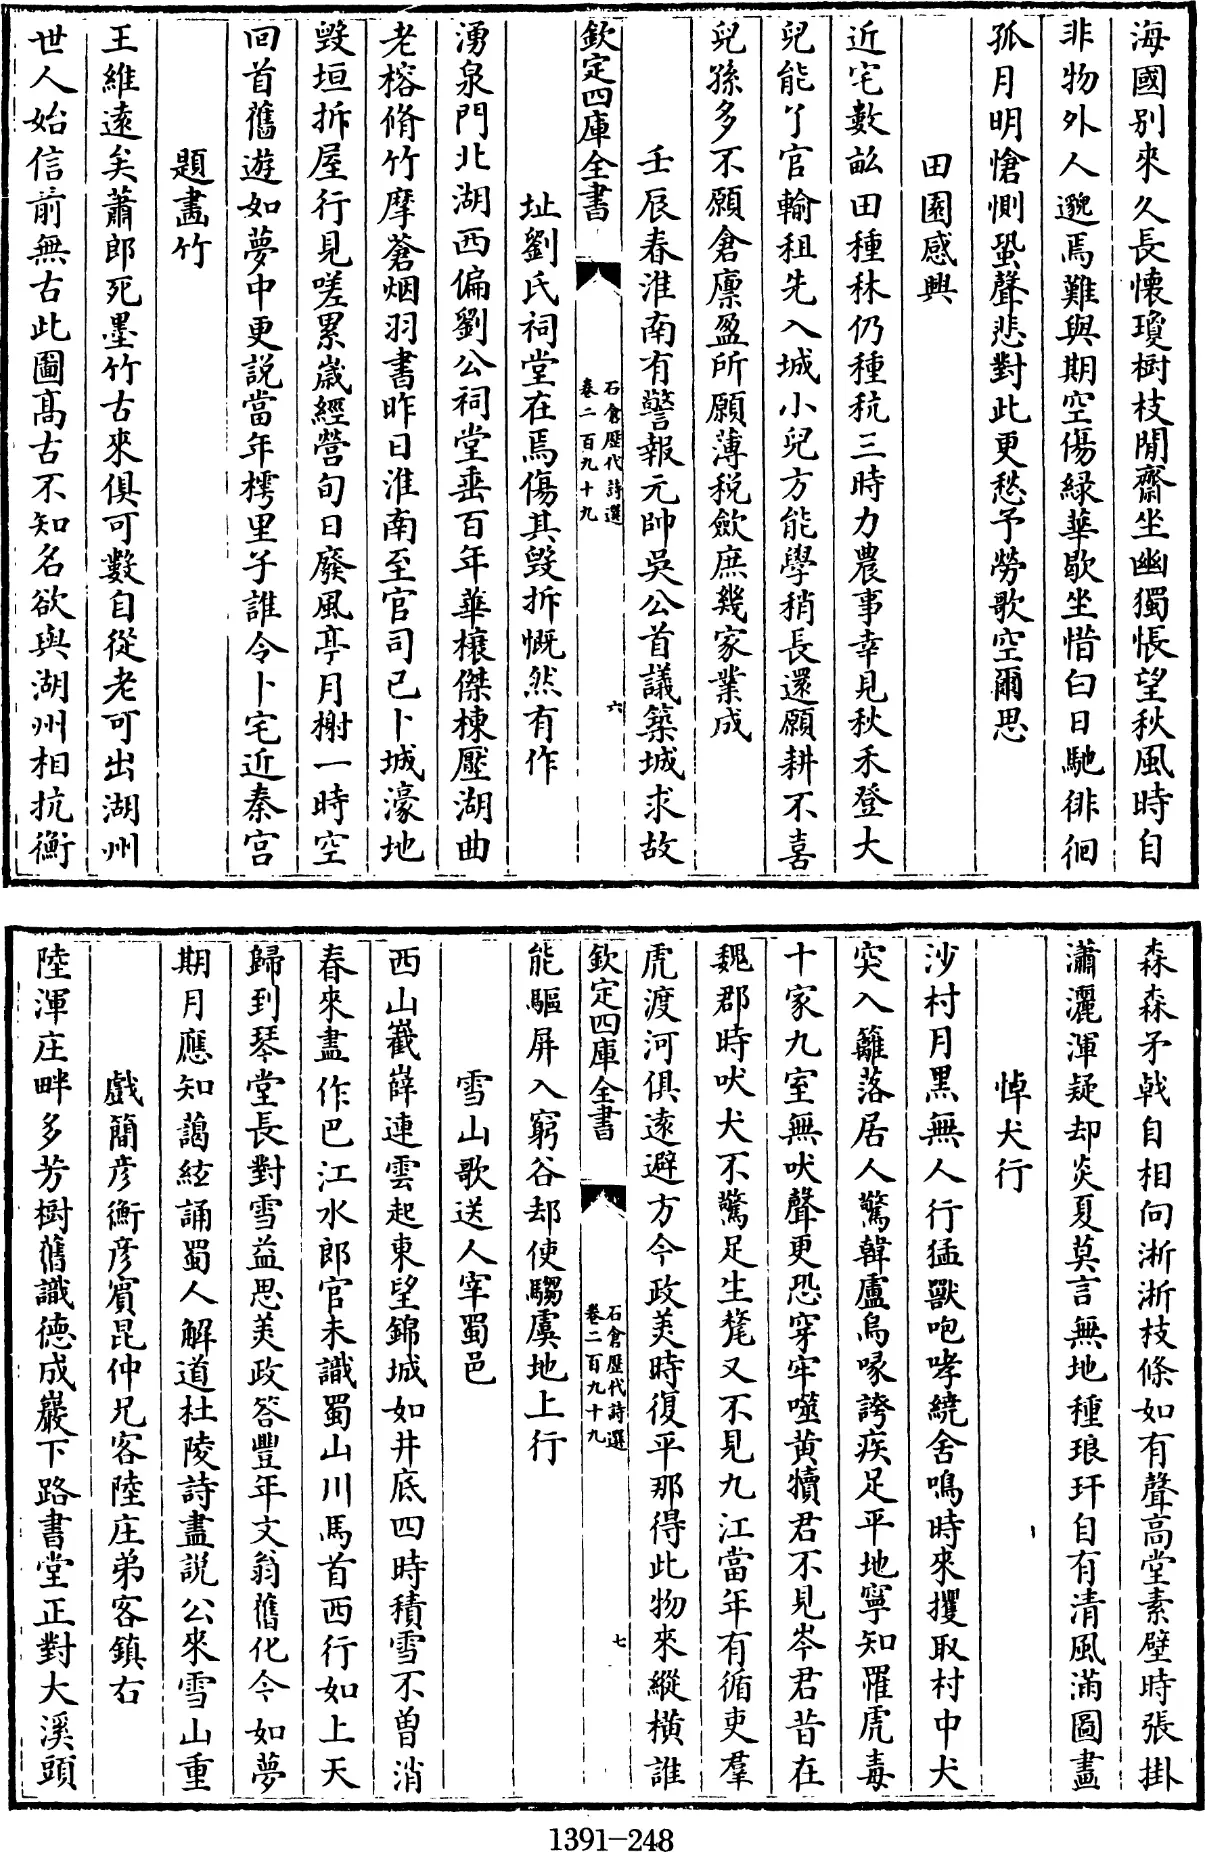 海國别來久長懐瓊樹枝閒齋坐幽獨悵望秋風時自
非物外人邈焉難與期空傷緑華歇坐惜白日馳徘徊
孤月明愴惻蛩聲悲對此更愁予勞歌空爾思
田園感興
近宅數畝田種秫仍種秔三時力農事幸見秋禾登大
兒能了官輸租先入城小兒方能學稍長還願耕不喜
兒孫多不願倉廪盈所願薄税歛庶㡬家業成
壬辰春淮南有警報元帥吳公首議築城求故
欽定四庫全書
石倉歴代詩選
卷二百九十九
六
址劉氏祠堂在焉傷其毁拆慨然有作
湧泉門北湖西偏劉公祠堂垂百年華榱傑棟壓湖曲
老榕脩竹摩蒼烟羽書昨日淮南至官司已卜城濠地
毁垣拆屋行見嗟累歲經營旬日廢風亭月榭一時空
回首舊遊如夢中更説當年樗里子誰令卜宅近秦宫
題畫竹
王維逺矣蕭郎死墨竹古來俱可數自從老可出湖州
世人始信前無古此圖髙古不知名欲與湖州相抗衡
森森矛戟自相向淅淅枝條如有聲高堂素壁時張掛
瀟灑渾疑却炎夏莫言無地種琅玕自有清風滿圖畫
悼犬行
沙村月黑無人行猛獸咆哮繞舍鳴時來攫取村中犬
突入籬落居人驚韓盧烏喙誇疾足平地寧知罹虎毒
十家九室無吠聲更恐穿牢噬黄犢君不見岑君昔在
魏郡時吠犬不驚足生氂又不見九江當年有循吏羣
虎渡河俱逺避方今政美時復平那得此物來縱横誰
欽定四庫全書
石倉歴代詩選
卷二百九十九
七
能驅屏入窮谷却使騶虞地上行
雪山歌送人宰蜀邑
西山嶻嶭連雲起東望錦城如井底四時積雪不曽消
春來盡作巴江水郎官未識蜀山川馬首西行如上天
歸到琴堂長對雪益思美政答豐年文翁舊化今如夢
期月應知藹絃誦蜀人解道杜陵詩盡説公來雪山重
戲簡彦衡彦賔昆仲兄客陸庄弟客鎮右
陸渾庄畔多芳樹舊識德成巖下路書堂正對大溪頭
1391-248